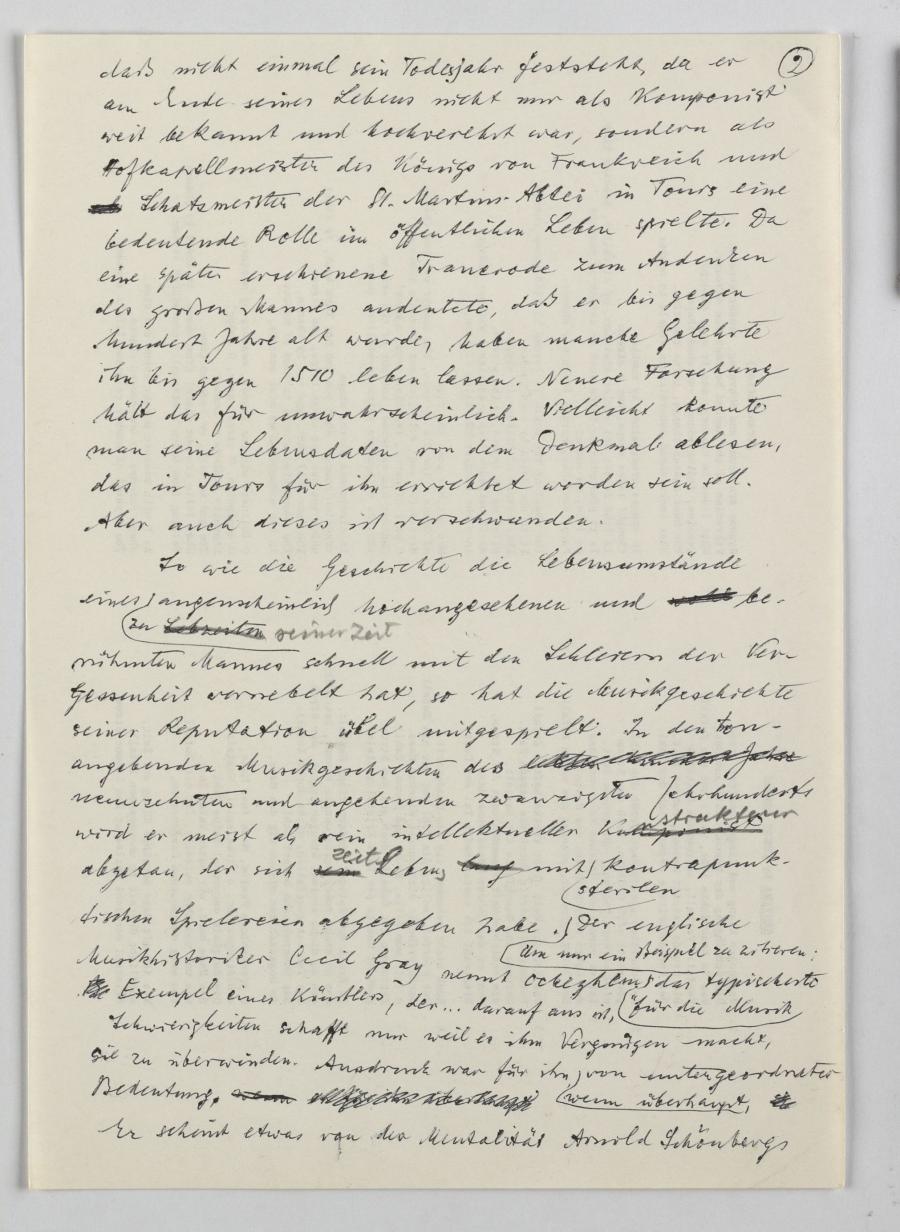 2
daß nicht einmal sein Todesjahr feststeht, da er
am Ende seines Lebens nicht nur als Komponist
weit bekannt und hochverehrt war, sondern als
Hofkapellmeister des Königs von Frankreich und
Schatzmeister der St. Martins-Abtei in Tours eine
bedeutende Rolle im öffentlichen Leben spielte. Da
eine später erschienene Trauerode zum Andenken
des großen Mannes andeutete, daß er bis gegen
hundert Jahre alt wurde, haben manche Gelehrte
ihn bis gegen 1510 leben lassen. Neuere Forschung
hält das für unwahrscheinlich. Vielleicht konnte
man seine Lebensdaten von dem Denkmal ablesen,
das in Tours für ihn errichtet worden sein soll.
Aber auch dieses ist verschwunden.
So wie die Geschichte die Lebensumstände
eines augenscheinlich hochangesehenen und be-
zu Lebzeiten seiner Zeit
rühmten Mannes schnell mit den Schleiern der Ver-
gessenheit vernebelt hat, so hat die Musikgeschichte
seiner Reputation übel mitgespielt. In den ton-
angebenden Musikgeschichten des
neunzehnten und angehenden zwanzigsten Jahrhunderts
strukteur
wird er meist als rein intellektueller Komponist
zeit
abgetan, der sich sein Lebens lang mit kontrapunk-
sterilen
tischen Spielereien abgegeben habe. Der englische
Um nur ein Beispiel zu zitieren:
Musikhistoriker Cecil Gray nennt Ockeghem "das typischeste
Exempel eines Künstlers, der... darauf aus ist, für die Musik
Schwierigkeiten schafft nur weil es ihm Vergnügen macht,
sie zu überwinden. Ausdruck war für ihn von untergeordneter
Bedeutung, wenn überhaupt,
Er scheint etwas von der Mentalität Arnold Schönbergs